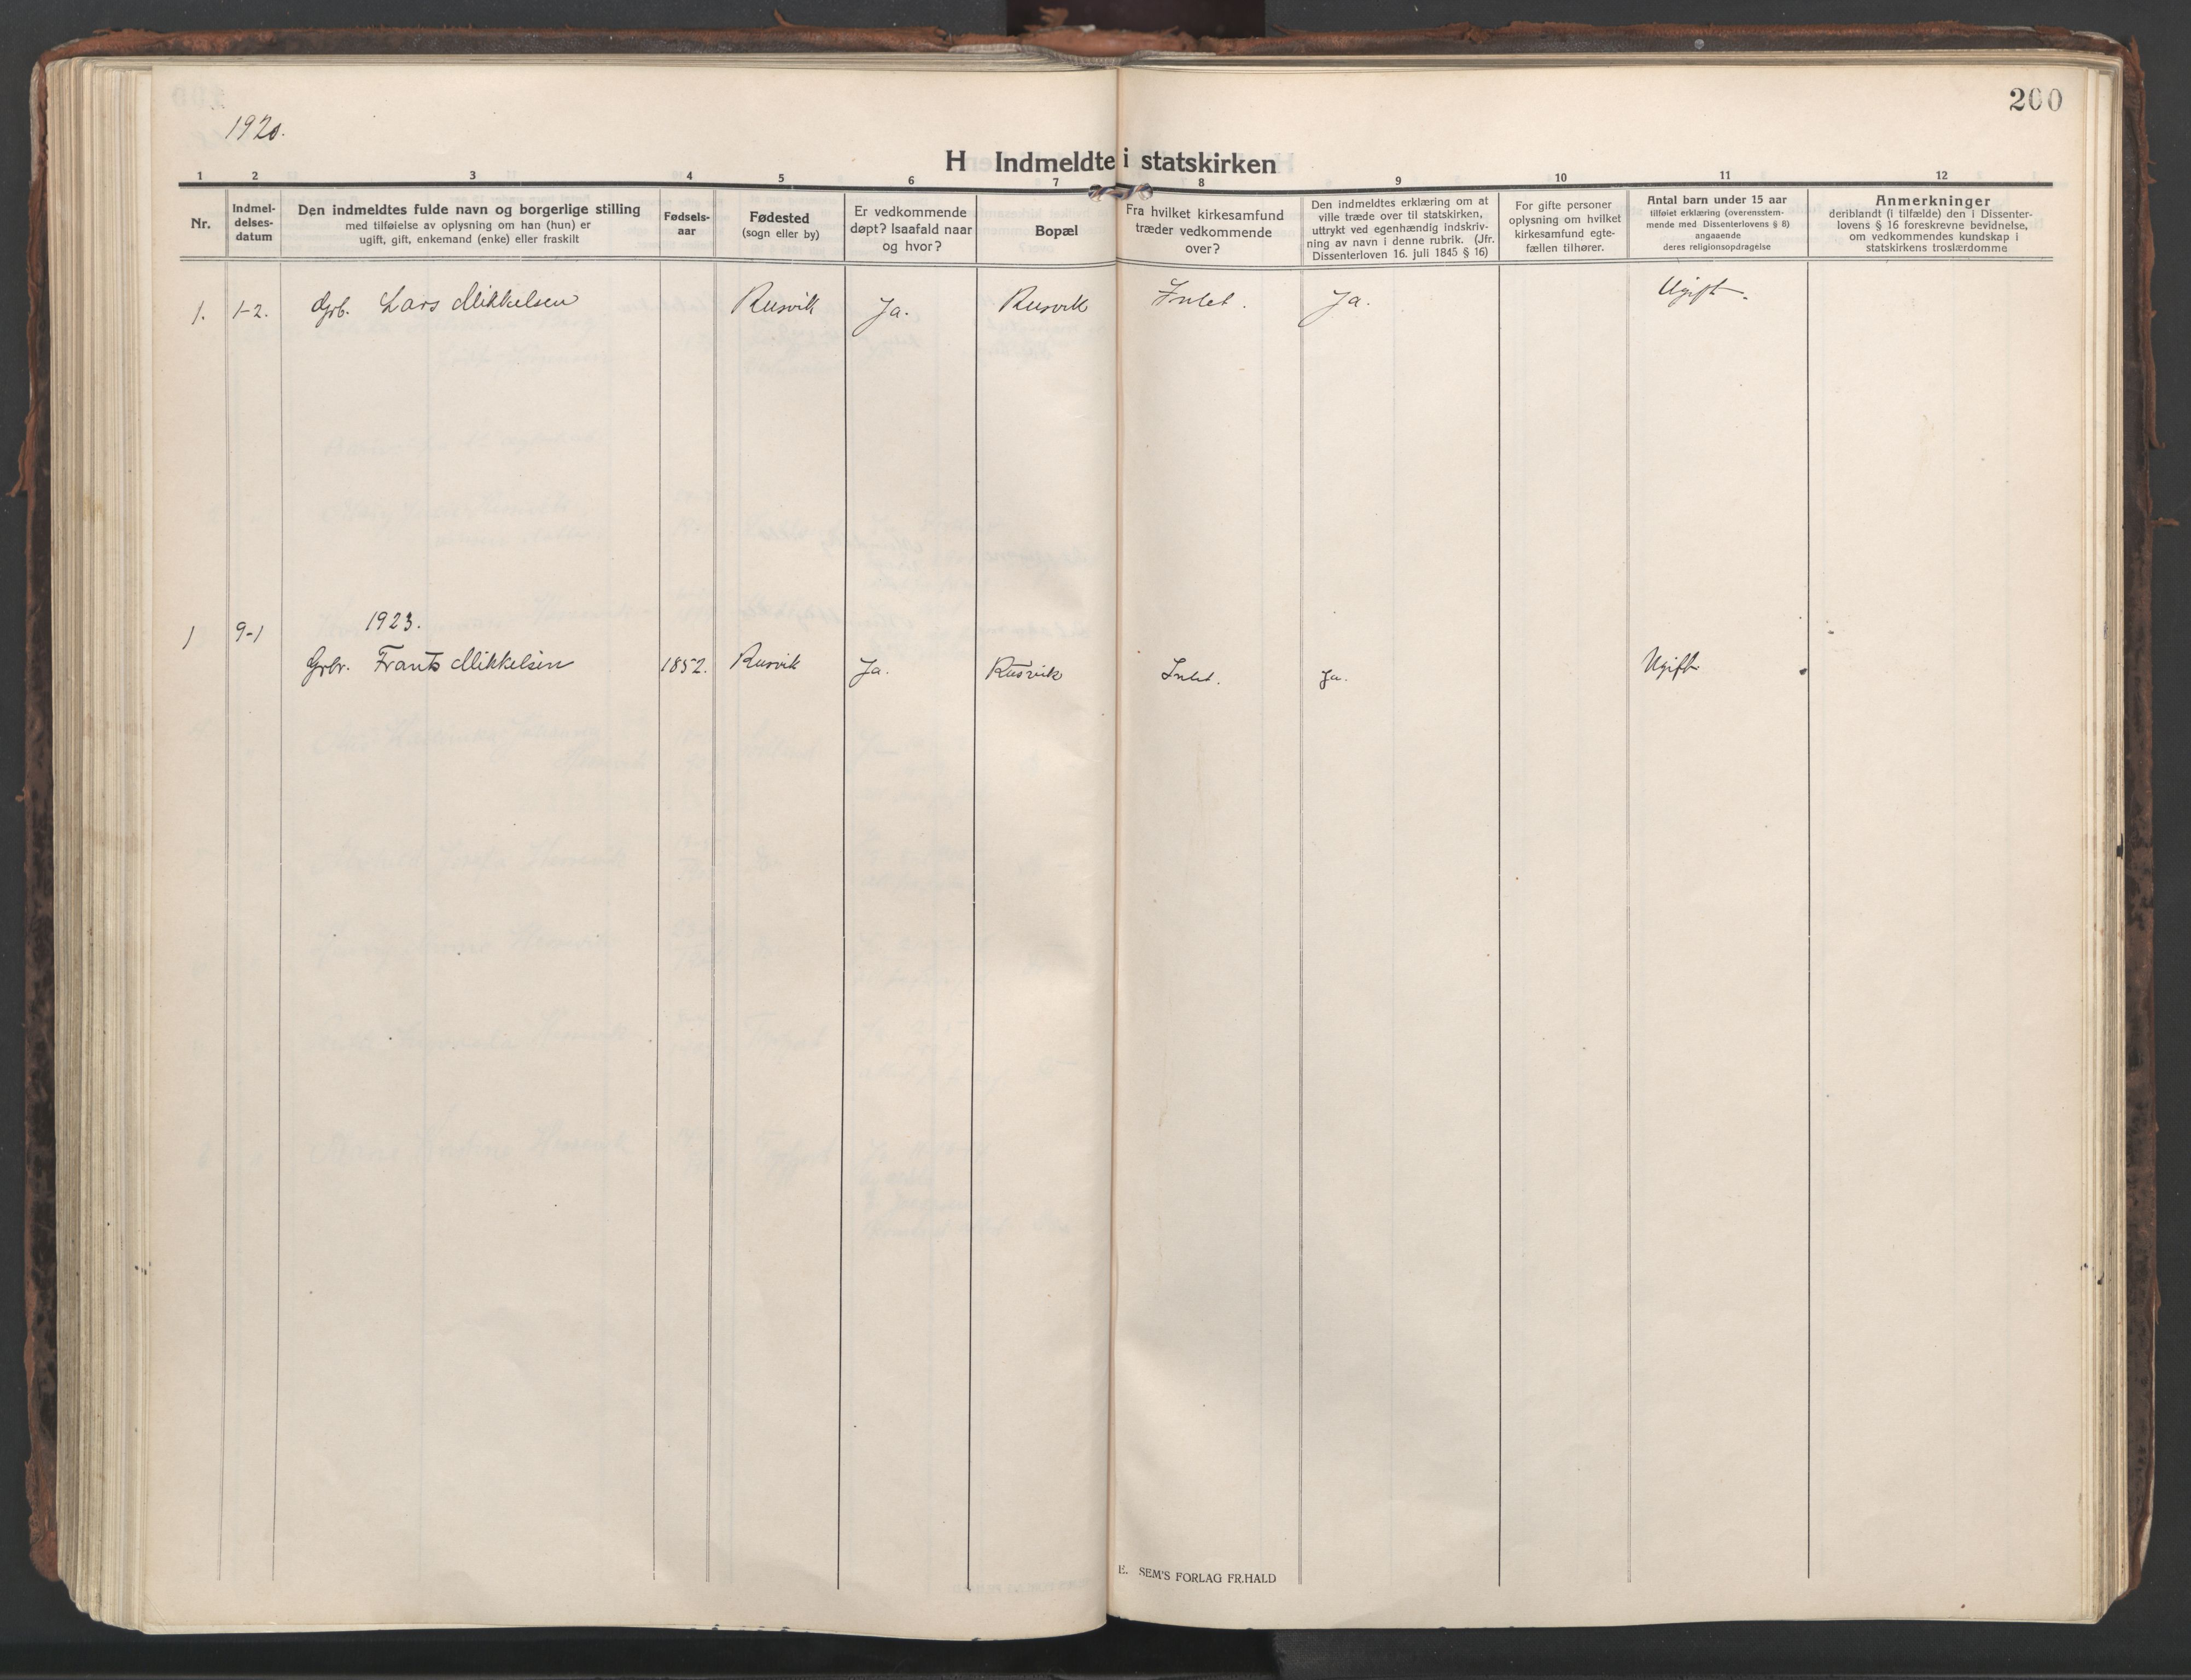 200
1920.
H Indmeldte i statskirken
1 2 3 4 5 6 7 8 9 10 11 12
Nr.
Indmel-
delses-
datum
Den indmeldtes fulde navn og borgerlige stilling
med tilføielse av oplysning om han (hun) er
ugift, gift, enkemand (enke) eller fraskilt
Fødsels-
aar
Fødested
(sogn eller by)
Er vedkommende
døpt? Isaafald naar
og hvor?
Bopæl
Fra hvilket kirkesamfund
træder vedkommende
over?
Den indmeldtes erklæring om at
ville træde over til statskirken,
uttrykt ved egenhændig indskriv-
ning av navn i denne rubrik. (Jfr.
Dissenterloven 16. juli 1845 § 16)
For gifte personer
oplysning om hvilket
kirkesamfund egte-
fællen tilhører.
Antal barn under 15 aar
tilføiet erklæring (overensstem-
mende med Dissenterlovens § 8)
angaaende
deres religionsopdragelse
Anmerkninger
deriblandt (i tilfælde) den i Dissenter-
lovens § 16 foreskrevne bevidnelse,
om vedkommendes kundskap i
statskirkens troslærdomme
1. 1-2. Grb. Lars Mikkelsen Rusvik Ja. Rusvik Intet. Ja. Ugift.
1923.
1 9-1
Grbr. Frants Mikkelsen 1852. Rusvik Ja. Rusvik Intet. Ja. Ugift
E. SEM'S FORLAG FR.HALD